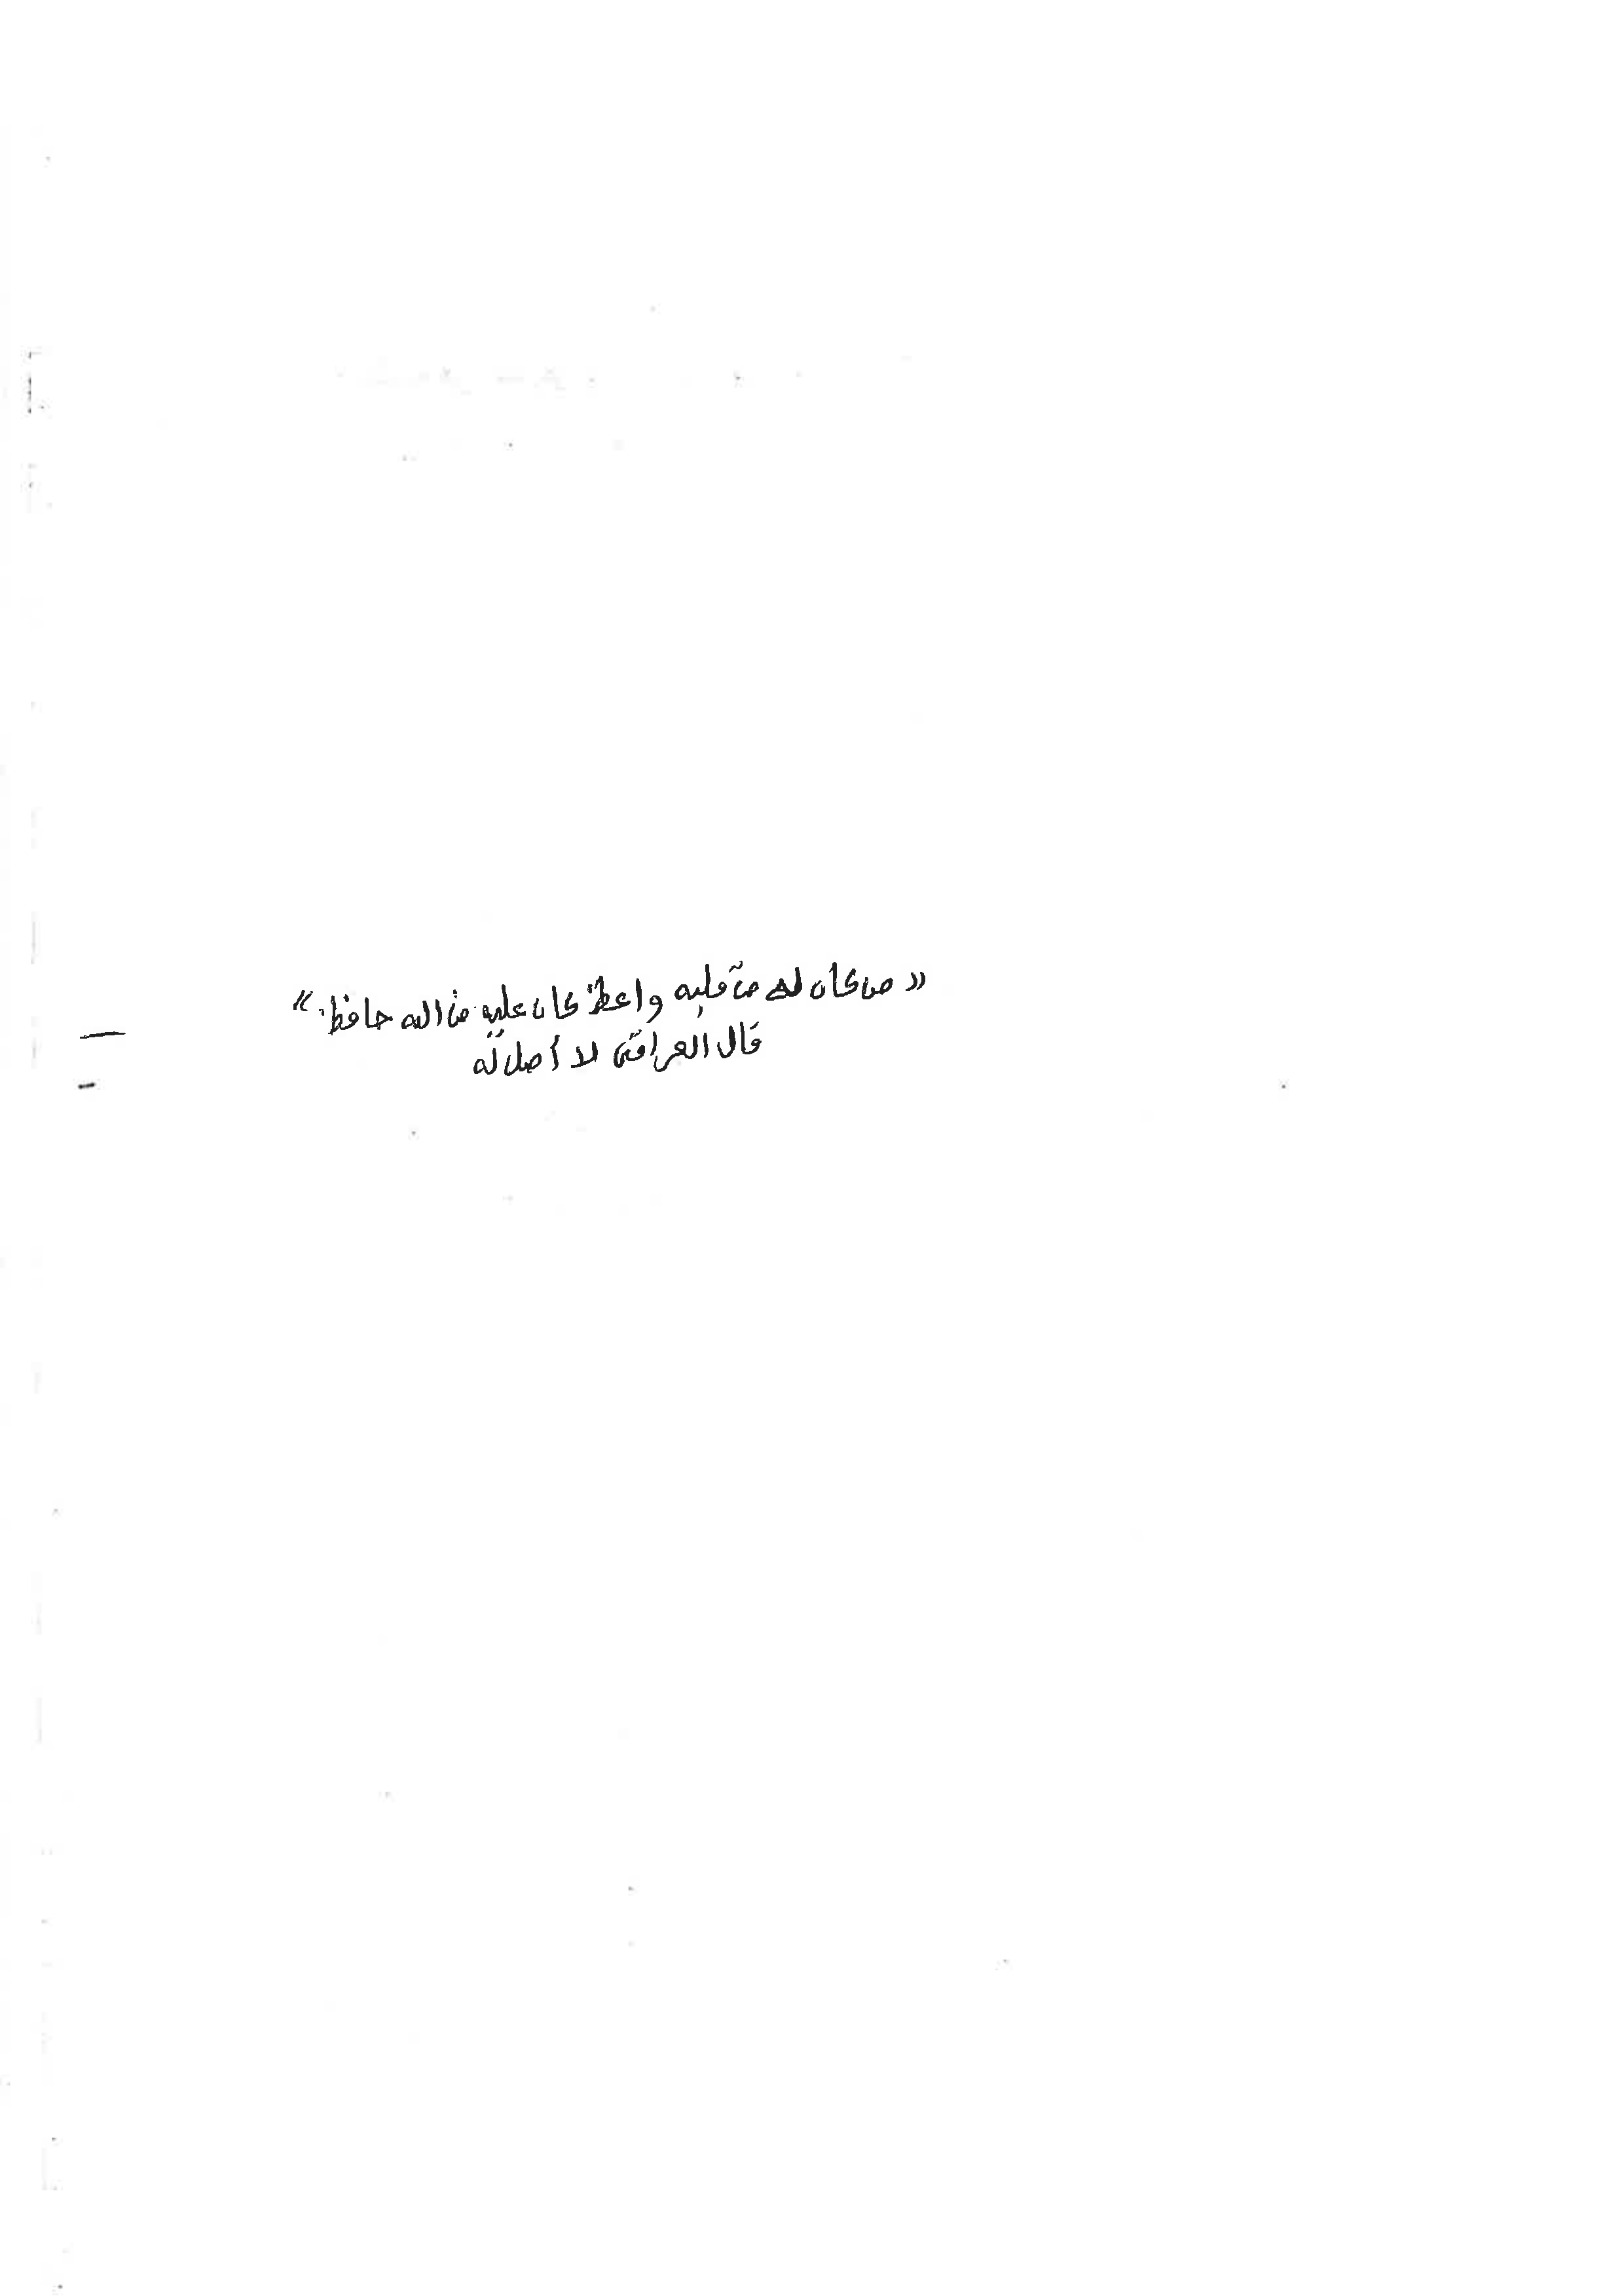 « من كان له من قلبه واعظ كان عليه من الله حافظ. »
قال العراقي لا أصل له